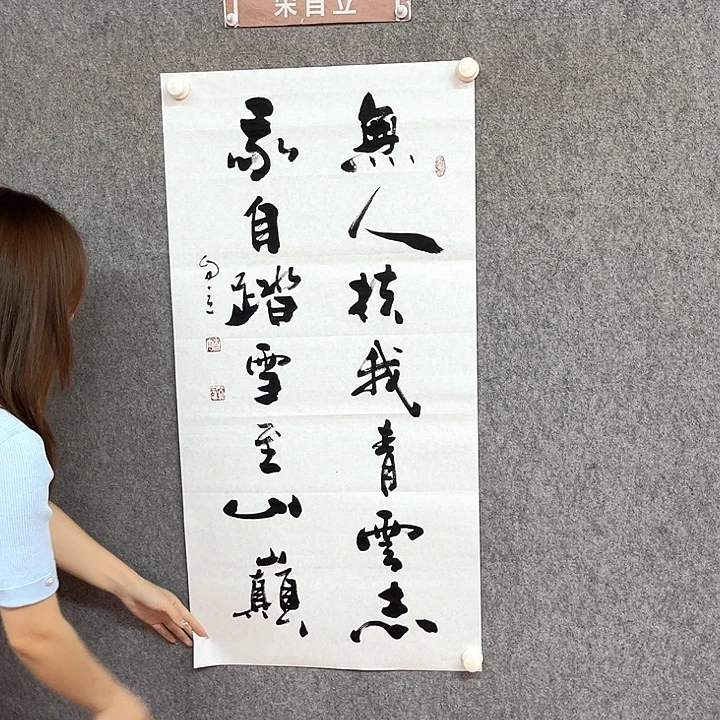 朱自立
無人扶我青雲志
我自踏雪至山巔
自立